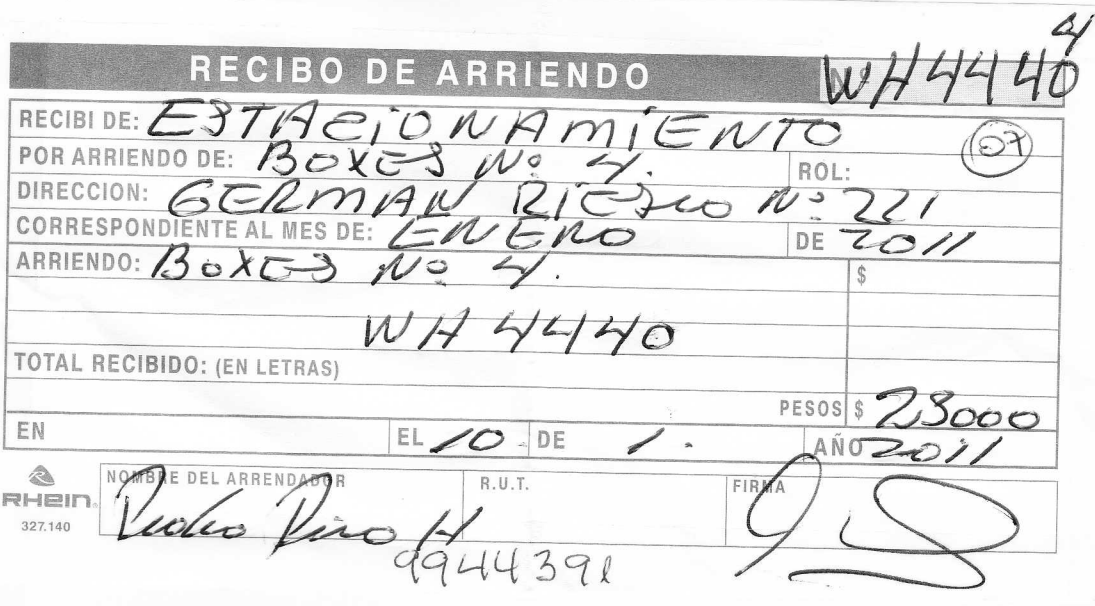 4
RECIBO DE ARRIENDO WH4440
RECIBI DE: ESTACIONAMIENTO 07
POR ARRIENDO DE: BOXES Nº 4. ROL:
DIRECCION: GERMAN RIESCO Nº 221
CORRESPONDIENTE AL MES DE: ENERO DE 2011
ARRIENDO: BOXES Nº 4. $
WH 4440
TOTAL RECIBIDO: (EN LETRAS)
PESOS $ 23000
EN EL 10 DE 1. AÑO 2011
NOMBRE DEL ARRENDADOR R.U.T. FIRMA
RHEIN
327.140
Pedro Pino H
9944391